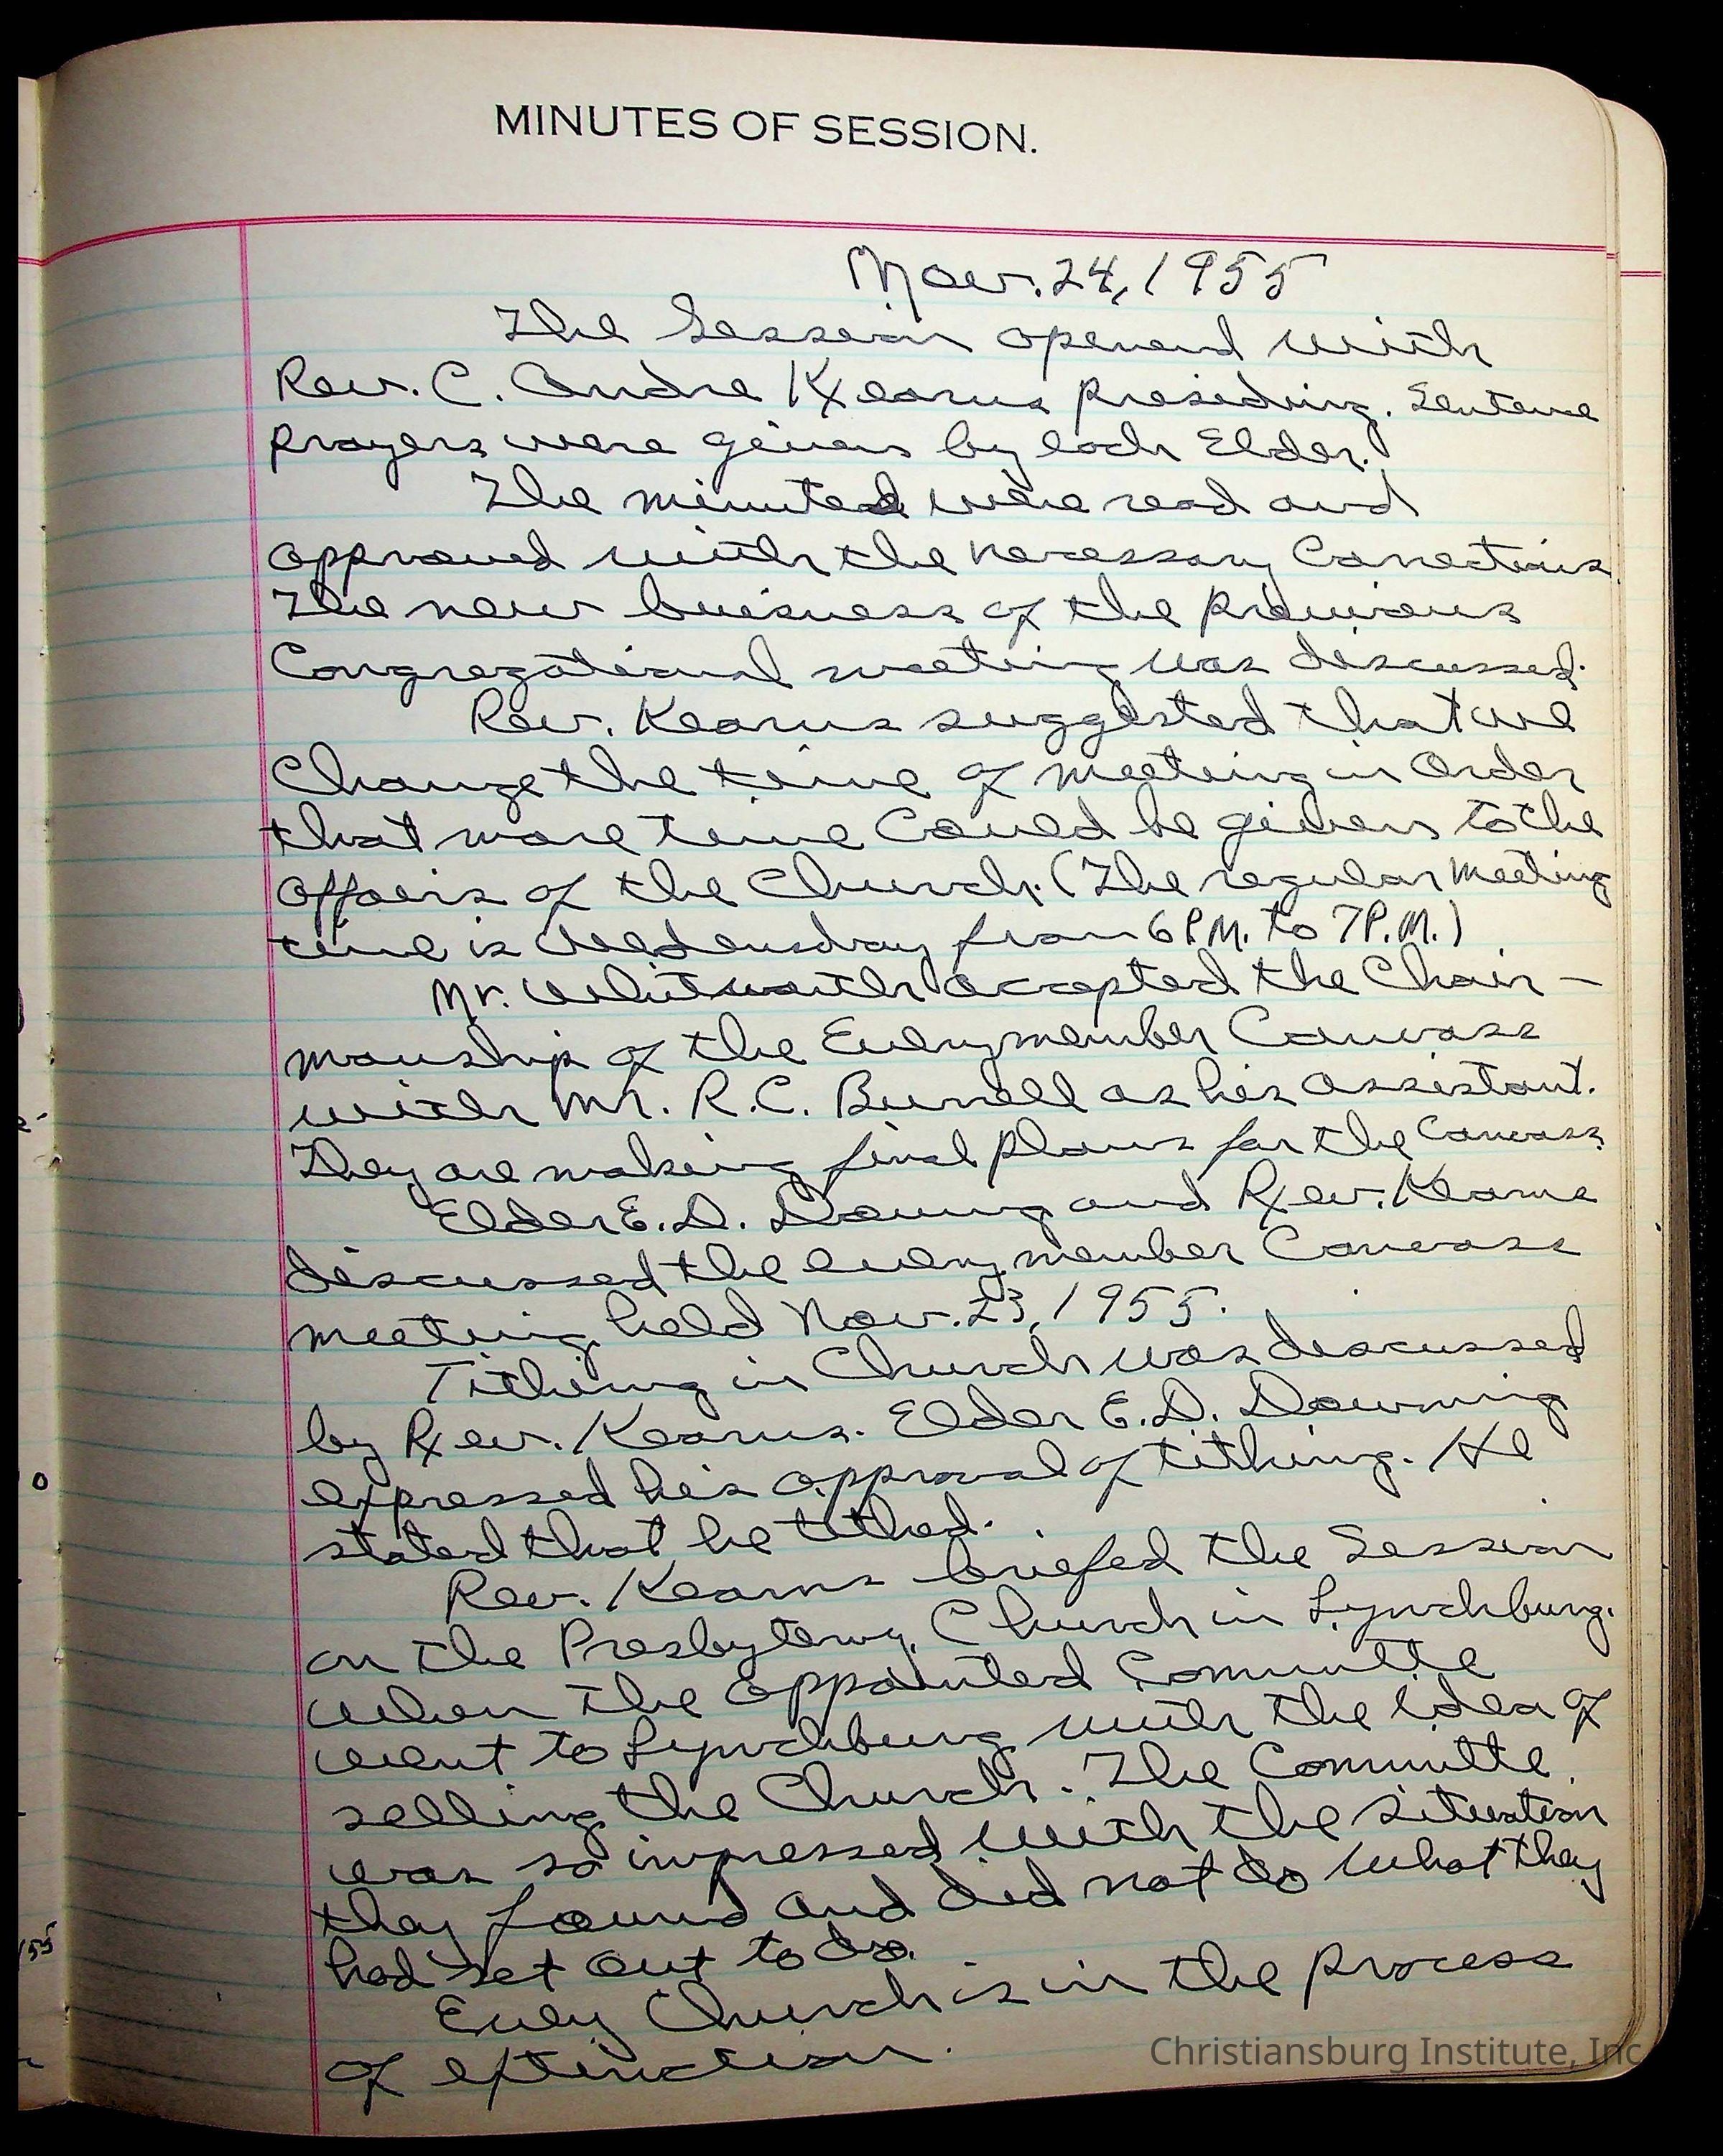 MINUTES OF SESSION.
Nov. 24, 1955
The Session opened with
Rev. C. Andre Kearns presiding. Sentence
prayers were given by each Elder.
The minutes were read and
approved with the necessary Corrections
The new buisness of the previous
Congregational meeting was discussed.
Rev. Kearns suggested that we
Change the time of meeting in Order
that more time Could be given to the
Affairs of the Church. (The regular meeting
time is Wednesday from 6 P.M. to 7 P.M.)
Mr. Whitworth accepted the Chair-
manship of the Everymember Canvass
with Mr. R.C. Burrell as his assistant.
They are making final plans for the Canvass.
Elder E.D. Downing and Rev. Kearns
discussed the every member Canvass
meeting held Nov. 23, 1955.
Tithing in Church was discussed
by Rev. Kearns. Elder E.D. Downing
expressed his approval of tithing. He
stated that he tithed.
Rev. Kearns briefed the Session
on the Presbytery Church in Lynchburg.
When the appointed Committe
went to Lynchburg with the idea of
selling the Church. The Committe
was so impressed with the situation
they found and did not do what they
had set out to do.
Every Church is in the process
of extinction.
155
Christiansburg Institute, Inc